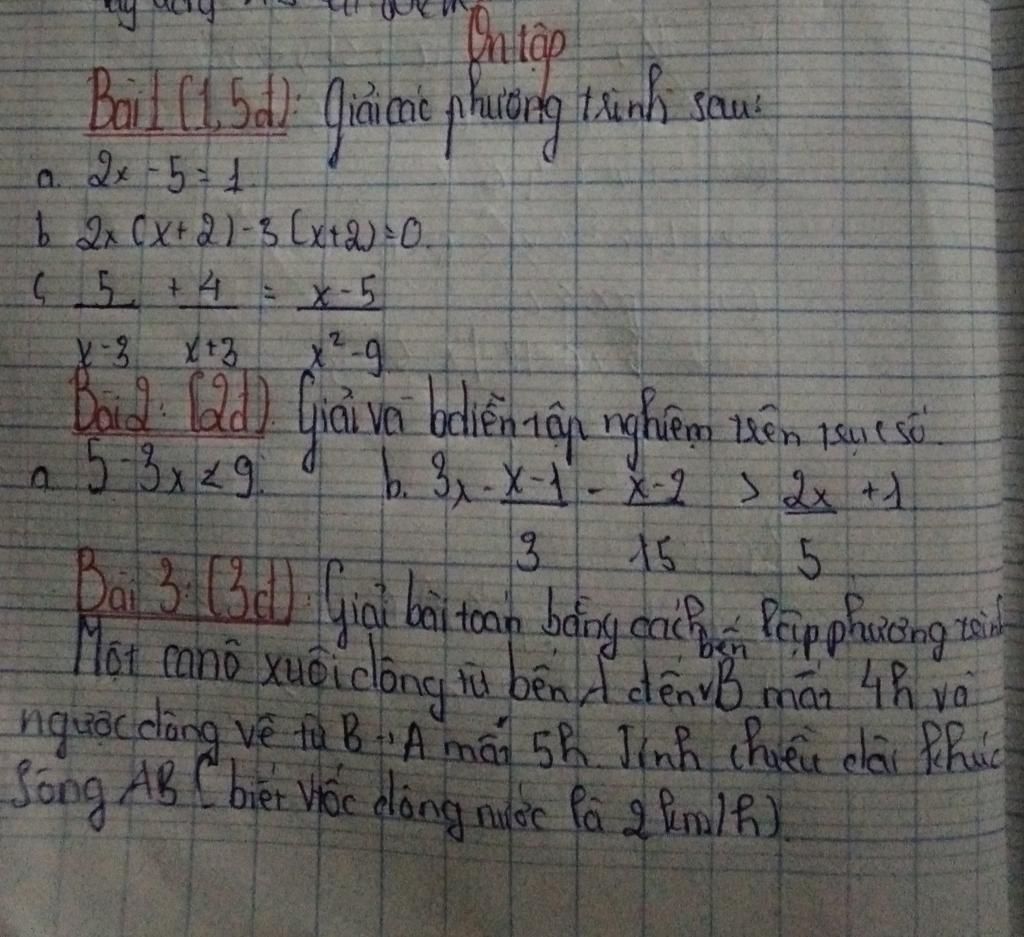 Ôn tập
Bài 1 (1,5đ): Giải các phương trình sau:
a. 2x - 5 = 1
b 2x (x+2) - 3 (x+2) = 0.
c 5/x-3 + 4/x+3 = x-5/x²-9
Bài 2: (2đ) Giải và bdiễn tập nghiệm trên trục số.
a 5 - 3x < 9. b. 3x - x-1/3 - x-2/15 > 2x/5 + 1
Bài 3: (3đ) Giải bài toán bằng cách lập phương trình
Một canô xuôi dòng từ bến A đến bến B mất 4h và
ngược dòng về từ B → A mất 5h. Tính chiều dài khúc
sông AB (biết vtốc dòng nước là 2km/h)